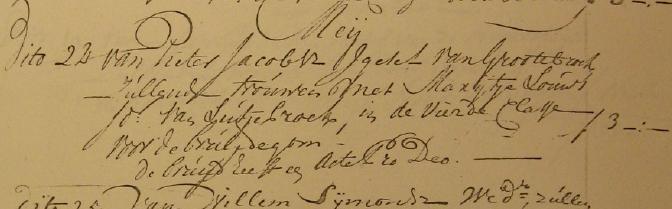 Meij
Dito 24 van Pieter Jacobsz IJgelst van Grootebroek
zullende trouwen met Marijtje Louws
jd: van Lutjebroek, in de vierde Classe
voor de bruijdegom — / 3 -:-
de bruijd heeft een Acte Pro Deo. —
Dito 25 Van Willem Sijmonsz Wedr, zullen